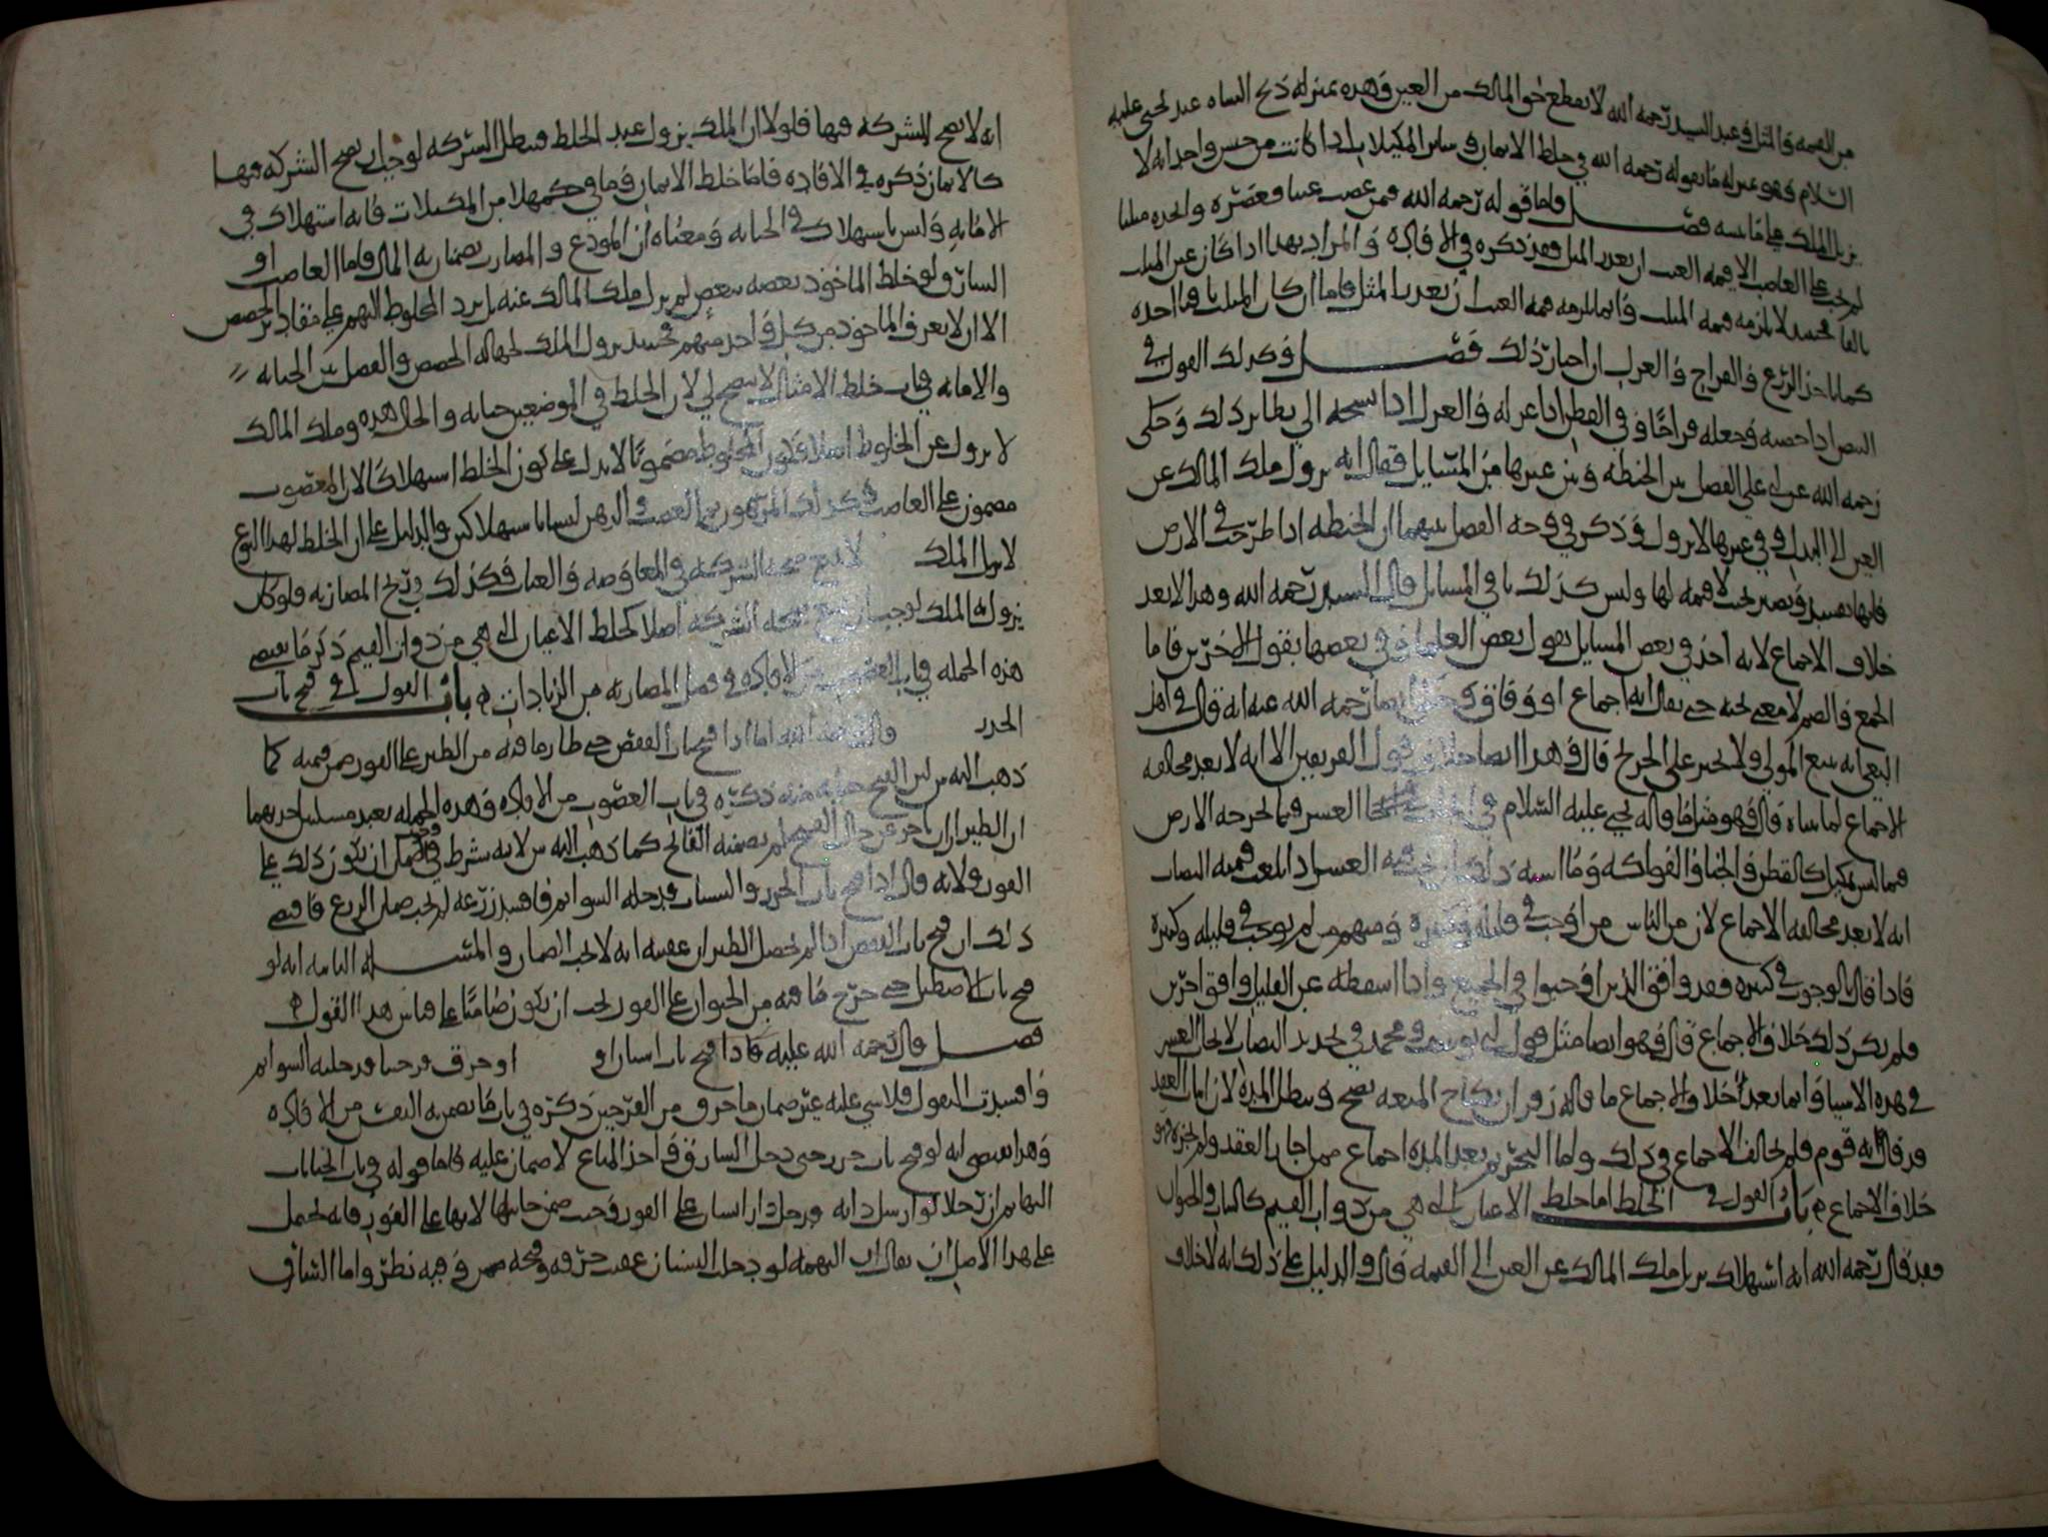 من القيمة والمثل وعند السيد رحمه الله لا ينقطع حق المالك من العين وهذه بمنزلة ذبح الشاه عند يحيى عليه
السلام فهو بمنزلة ما يقوله رحمه الله في خلط الاثمان وسائر المكيلات اذا كانت من جنس واحد انه لا
يزيل الملك فصل فاما قوله رحمه الله فمن غصب عنبا فعصره واتخذه مثلثا
لم يجب على الغاصب الا قيمة العنب ان تعذر المثل فقد ذكره في الافادة والمراد بهذا اذا كان عين المثلث
تالفا فحينئذ لا يلزمه قيمة المثلث وانما يلزمه قيمة العنب ان تعذر المثل فاما ان كان المثلث باقيا اخذه
كما ياخذ الزرع والفراخ والغزل ان اختار ذلك فصل وكذلك القول في
البيض اذا حضنه فجعله فراخا وفي القطن اذا غزله والغزل اذا نسجه الى نظاير ذلك وحكى
رحمه الله عن ابي علي الفصل بين الحنطة وبين غيرها من المسايل فقال انه يزول ملك المالك عن
العين الى البدل وفي غيرها لا يزول وذكر في وجه الفصل بينهما ان الحنطة اذا طرحت في الارض
فانها تفسد وتصير بحيث لا قيمة لها وليس كذلك باقي المسايل قال السيد رحمه الله وهذا لا يعد
خلاف الاجماع لانه اخذ في بعض المسايل بقول بعض العلماء وفي بعضها بقول الاخرين فاما
الجمع والضم لا معنى تحته حتى يقال انه اجماع او وفاق رحمه الله عنه انه قال في اهل
الاجماع لما بيناه قال وهو مثل ما قاله يحيى عليه السلام في العشر فيما تخرجه الارض
فيما ليس بمكيل كالقطن والحنا والفواكه وما اشبه ذلك فيه العشر اذا بلغت قيمته النصاب
انه لا يعد مخالفة الاجماع لان من الناس من اوجب في قليله وكثيره ومنهم من لم يوجب في قليله وكثيره
فاذا قال بالوجوب في كثيره فقد وافق الذين اوجبوا في الجميع واذا اسقطه عن القليل وافق اخرين
فلم يكن ذلك خلاف الاجماع قال وهو ايضا مثل قول ابي يوسف ومحمد في تحديد النصاب لايجاب العشر
في هذه الاشيا وانما يعد خلاف الاجماع ما قاله زفر ان نكاح المتعة يصح وتبطل المدة لان اثبات العقد
قد قال به قوم فلم يخالف الاجماع في ذلك واما التحريم بعد المدة اجماع ممن اجاز العقد ولم يجزه فهو
خلاف الاجماع باب القول في الخلط اما خلط الاعيان التي هي من ذوات القيم كالثياب والحيوان
فقد قال رحمه الله انه استهلاك يزيل ملك المالك عن العين الى القيمة قال والدليل على ذلك انه لا خلاف
انه لا يصح الشركة فيها فلولا ان الملك يزول عند الخلط فتبطل الشركة لوجب ان يصح الشركة فيها
كالاثمان ذكره في الافادة فاما خلط الاثمان وما في حكمها من المكيلات فانه استهلاك في
الامانة وليس باستهلاك في الجناية ومعناه ان المودع والمضارب يضمنان به المال فاما الغاصب او
السارق لو خلط الماخوذ بعضه ببعض لم يزل ملك المالك عنه بل يرد المخلوط اليهم على مقادير الحصص
الا ان لا يعرف الماخوذ من كل واحد منهم فحينئذ يزول الملك لجهالة الحصص والفصل بين الجناية
والامانة في باب خلط الامثال لا يتضح لي لان الخلط في الموضعين جناية والحال هذه وملك المالك
لا يزول عن المخلوط اصلا وكون المخلوط مضمونا لا يدل على كون الخلط استهلاكا لان المغصوب
مضمون على الغاصب وكذلك المرهون ثم الغصب والرهن ليسا باستهلاكين والدليل على ان الخلط لهذا النوع
لا يزيل الملك صحة الشركة في المعاوضة والعنان وكذلك في ربح المضاربة فلو كان
يزول به الملك لوجب ان لا تصح الشركة اصلا كخلط الاعيان التي هي من ذوات القيم ذكر ما يقتضي
هذه الجملة في باب الغصوب من الافادة وفي فصل المضاربة من الزيادات باب القول في فتح باب
الحرز قال رحمه الله اما اذا فتح باب القفص حتى طار ما فيه من الطير على الفور ضمن قيمته كما
ذهب اليه س لان الفتح جناية منه ذكره في باب الغصوب من الافادة وهذه الجملة تفيد مسئلتين احديهما
ان الطيران ان تاخر عن حال الفتح لم يضمنه الفاتح كما ذهب اليه س لانه شرط في الضمان ان يكون ذلك على
الفور ولانه قال اذا فتح باب الحرز والبستان فدخله السوايم فافسد زرعه لم يجب ضمان الزرع فاقتضى
ذلك ان فتح باب القفص اذا لم يحصل الطيران عقيبه انه لا يجب الضمان والمسئلة الثانية انه لو
فتح باب الاصطبل حتى خرج ما فيه من الحيوان على الفور يجب ان يكون ضامنا على قياس هذا القول
فصل قال رحمه الله عليه فاذا فتح باب انسان او او حرق فرجينا فدخلته السوايم
وافسدت البقول فلا شي عليه غير ضمان ما حرق من الفرجين ذكره في باب ما يضمن به النفس من الافادة
وهذا يقتضي انه لو فتح باب حرز حتى دخل السارق واخذ المتاع لا ضمان عليه فاما قوله في باب الجنايات
البهايم ان رجلا لو ارسل دابة فدخل دار انسان على الفور وجب ضمن جنايتها لانها على الفور فانه يحتمل
على هذا الاصل ان يقال ان البهيمة لو دخل البستان عقيب حرقه وفتحه ضمن وفيه نظر واما السارق